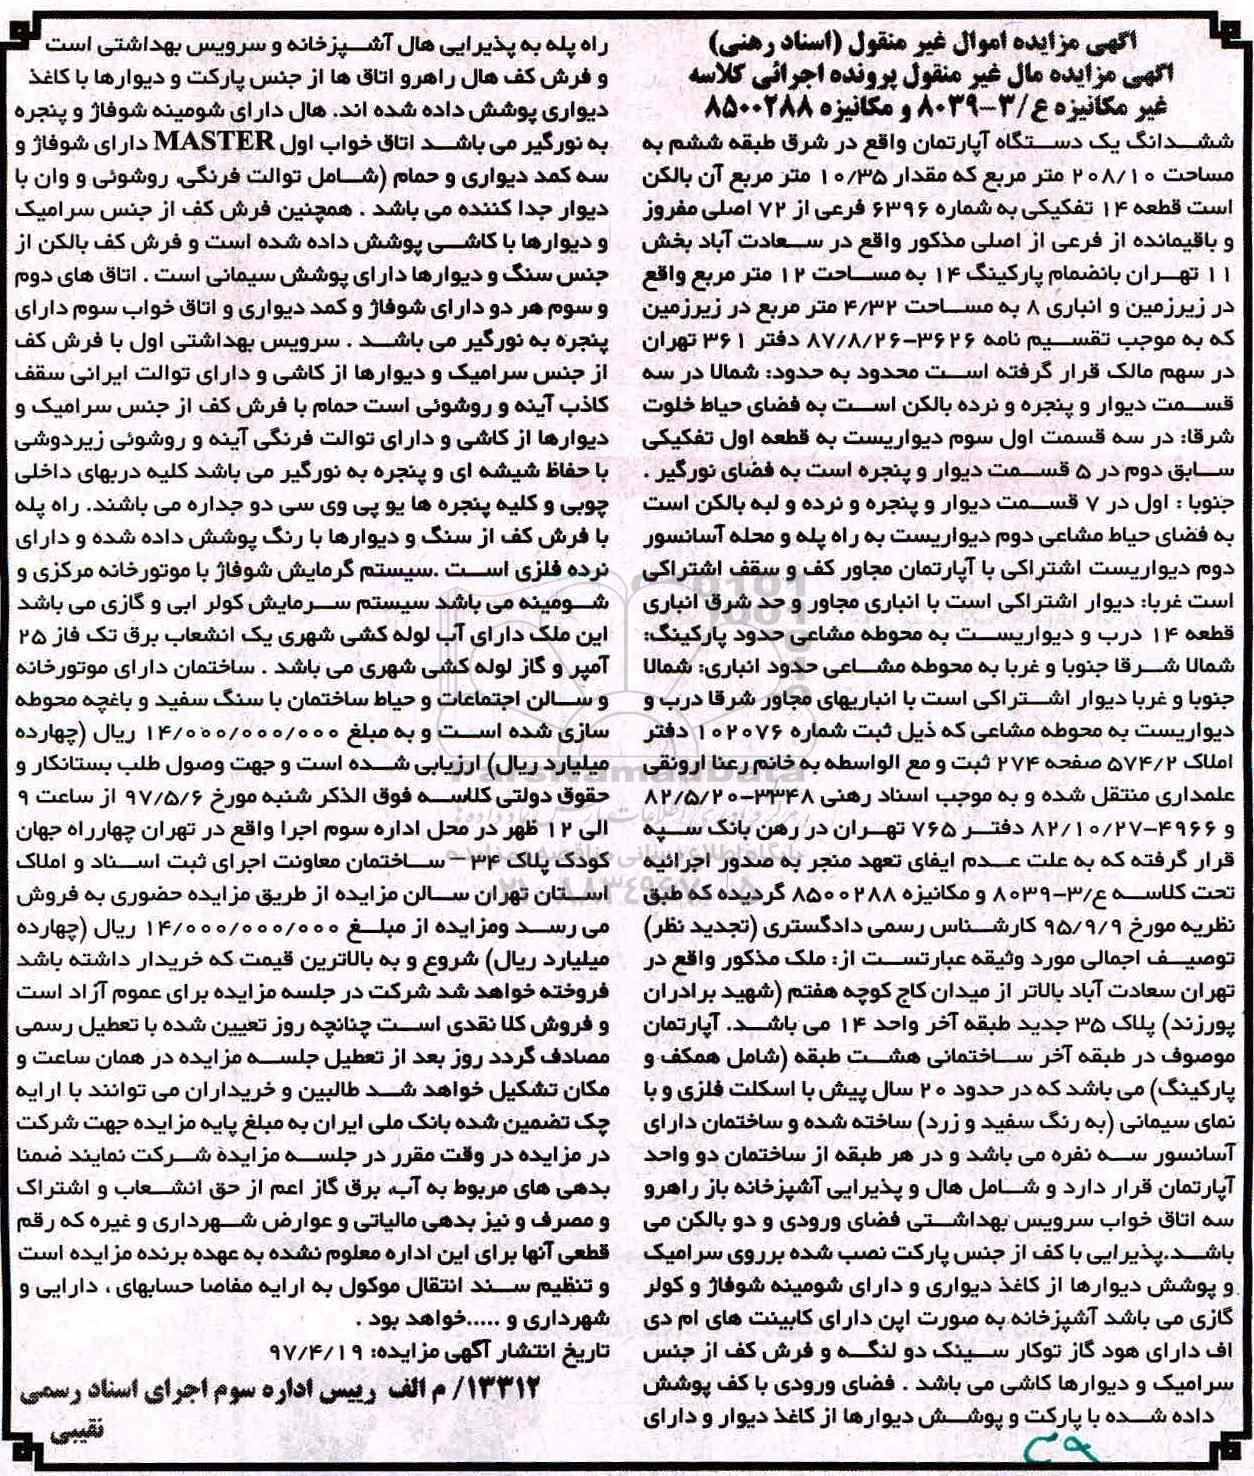 آگهی مزایده اموال غیر منقول (اسناد رهنی)
آگهی مزایده مال غیر منقول پرونده اجرائی کلاسه
غیر مکانیزه ع/۳-۸۰۳۹ و مکانیزه ۸۵۰۰۲۸۸
ششدانگ یک دستگاه آپارتمان واقع در شرق طبقه ششم به
مساحت ۲۰۸/۱۰ متر مربع که مقدار ۱۰/۳۵ متر مربع آن بالکن
است قطعه ۱۴ تفکیکی به شماره ۶۳۹۶ فرعی از ۷۲ اصلی مفروز
و باقیمانده از فرعی از اصلی مذکور واقع در سعادت آباد بخش
۱۱ تهران بانضمام پارکینگ ۱۴ به مساحت ۱۲ متر مربع واقع
در زیرزمین و انباری ۸ به مساحت ۴/۳۲ متر مربع در زیرزمین
که به موجب تقسیم نامه ۳۶۲۶-۸۷/۸/۲۶ دفتر ۳۶۱ تهران
در سهم مالک قرار گرفته است محدود به حدود: شمالا در سه
قسمت دیوار و پنجره و نرده بالکن است به فضای حیاط خلوت
شرقا: در سه قسمت اول سوم دیواریست به قطعه اول تفکیکی
سابق دوم در ۵ قسمت دیوار و پنجره است به فضای نورگیر .
جنوبا : اول در ۷ قسمت دیوار و پنجره و نرده و لبه بالکن است
به فضای حیاط مشاعی دوم دیواریست به راه پله و محله آسانسور
دوم دیواریست اشتراکی با آپارتمان مجاور کف و سقف اشتراکی
است غربا: دیوار اشتراکی است با انباری مجاور و حد شرق انباری
قطعه ۱۴ درب و دیواریست به محوطه مشاعی حدود پارکینگ:
شمالا شرقا جنوبا و غربا به محوطه مشاعی حدود انباری: شمالا
جنوبا و غربا دیوار اشتراکی است با انباریهای مجاور شرقا درب و
دیواریست به محوطه مشاعی که ذیل ثبت شماره ۱۰۲۰۷۶ دفتر
املاک ۵۷۴/۲ صفحه ۲۷۴ ثبت و مع الواسطه به خانم رعنا ارونقی
علمداری منتقل شده و به موجب اسناد رهنی ۳۳۴۸-۸۲/۵/۲۰
و ۴۹۶۶-۸۲/۱۰/۲۷ دفتر ۷۶۵ تهران در رهن بانک سپه
قرار گرفته که به علت عدم ایفای تعهد منجر به صدور اجرائیه
تحت کلاسه ع/۳-۸۰۳۹ و مکانیزه ۸۵۰۰۲۸۸ گردیده که طبق
نظریه مورخ ۹۵/۹/۹ کارشناس رسمی دادگستری (تجدید نظر)
توصیف اجمالی مورد وثیقه عبارتست از: ملک مذکور واقع در
تهران سعادت آباد بالاتر از میدان کاج کوچه هفتم (شهید برادران
پورزند) پلاک ۳۵ جدید طبقه آخر واحد ۱۴ می باشد. آپارتمان
موصوف در طبقه آخر ساختمانی هشت طبقه (شامل همکف و
پارکینگ) می باشد که در حدود ۲۰ سال پیش با اسکلت فلزی و با
نمای سیمانی (به رنگ سفید و زرد) ساخته شده و ساختمان دارای
آسانسور سه نفره می باشد و در هر طبقه از ساختمان دو واحد
آپارتمان قرار دارد و شامل هال و پذیرایی آشپزخانه باز راهرو
سه اتاق خواب سرویس بهداشتی فضای ورودی و دو بالکن می
باشد.پذیرایی با کف از جنس پارکت نصب شده برروی سرامیک
و پوشش دیوارها از کاغذ دیواری و دارای شومینه شوفاژ و کولر
گازی می باشد آشپزخانه به صورت اپن دارای کابینت های ام دی
اف دارای هود گاز توکار سینک دو لنگه و فرش کف از جنس
سرامیک و دیوارها کاشی می باشد . فضای ورودی با کف پوشش
داده شده با پارکت و پوشش دیوارها از کاغذ دیوار و دارای
راه پله به پذیرایی هال آشپزخانه و سرویس بهداشتی است
و فرش کف هال راهرو اتاق ها از جنس پارکت و دیوارها با کاغذ
دیواری پوشش داده شده اند. هال دارای شومینه شوفاژ و پنجره
به نورگیر می باشد اتاق خواب اول MASTER دارای شوفاژ و
سه کمد دیواری و حمام (شامل توالت فرنگی، روشوئی و وان با
دیوار جدا کننده می باشد . همچنین فرش کف از جنس سرامیک
و دیوارها با کاشی پوشش داده شده است و فرش کف بالکن از
جنس سنگ و دیوارها دارای پوشش سیمانی است . اتاق های دوم
و سوم هر دو دارای شوفاژ و کمد دیواری و اتاق خواب سوم دارای
پنجره به نورگیر می باشد . سرویس بهداشتی اول با فرش کف
از جنس سرامیک و دیوارها از کاشی و دارای توالت ایرانی سقف
کاذب آینه و روشوئی است حمام با فرش کف از جنس سرامیک و
دیوارها از کاشی و دارای توالت فرنگی آینه و روشوئی زیردوشی
با حفاظ شیشه ای و پنجره به نورگیر می باشد کلیه دربهای داخلی
چوبی و کلیه پنجره ها یو پی وی سی دو جداره می باشند. راه پله
با فرش کف از سنگ و دیوارها با رنگ پوشش داده شده و دارای
نرده فلزی است .سیستم گرمایش شوفاژ با موتورخانه مرکزی و
شومینه می باشد سیستم سرمایش کولر ابی و گازی می باشد
این ملک دارای آب لوله کشی شهری یک انشعاب برق تک فاز ۲۵
آمپر و گاز لوله کشی شهری می باشد . ساختمان دارای موتورخانه
و سالن اجتماعات و حیاط ساختمان با سنگ سفید و باغچه محوطه
سازی شده است و به مبلغ ۱۴/۰۰۰/۰۰۰/۰۰۰ ریال (چهارده
میلیارد ریال) ارزیابی شده است و جهت وصول طلب بستانکار و
حقوق دولتی کلاسه فوق الذکر شنبه مورخ ۹۷/۵/۶ از ساعت ۹
الی ۱۲ ظهر در محل اداره سوم اجرا واقع در تهران چهارراه جهان
کودک پلاک ۳۴ – ساختمان معاونت اجرای ثبت اسناد و املاک
استان تهران سالن مزایده از طریق مزایده حضوری به فروش
می رسد ومزایده از مبلغ ۱۴/۰۰۰/۰۰۰/۰۰۰ ریال (چهارده
میلیارد ریال) شروع و به بالاترین قیمت که خریدار داشته باشد
فروخته خواهد شد شرکت در جلسه مزایده برای عموم آزاد است
و فروش کلا نقدی است چنانچه روز تعیین شده با تعطیل رسمی
مصادف گردد روز بعد از تعطیل جلسه مزایده در همان ساعت و
مکان تشکیل خواهد شد طالبین و خریداران می توانند با ارایه
چک تضمین شده بانک ملی ایران به مبلغ پایه مزایده جهت شرکت
در مزایده در وقت مقرر در جلسه مزایده شرکت نمایند ضمنا
بدهی های مربوط به آب، برق گاز اعم از حق انشعاب و اشتراک
و مصرف و نیز بدهی مالیاتی و عوارض شهرداری و غیره که رقم
قطعی آنها برای این اداره معلوم نشده به عهده برنده مزایده است
و تنظیم سند انتقال موکول به ارایه مفاصا حسابهای ، دارایی و
شهرداری و .....خواهد بود .
تاریخ انتشار آگهی مزایده: ۹۷/۴/۱۹
۱۳۳۱۲/ م الف رییس اداره سوم اجرای اسناد رسمی
نقیبی
ParsNamadData